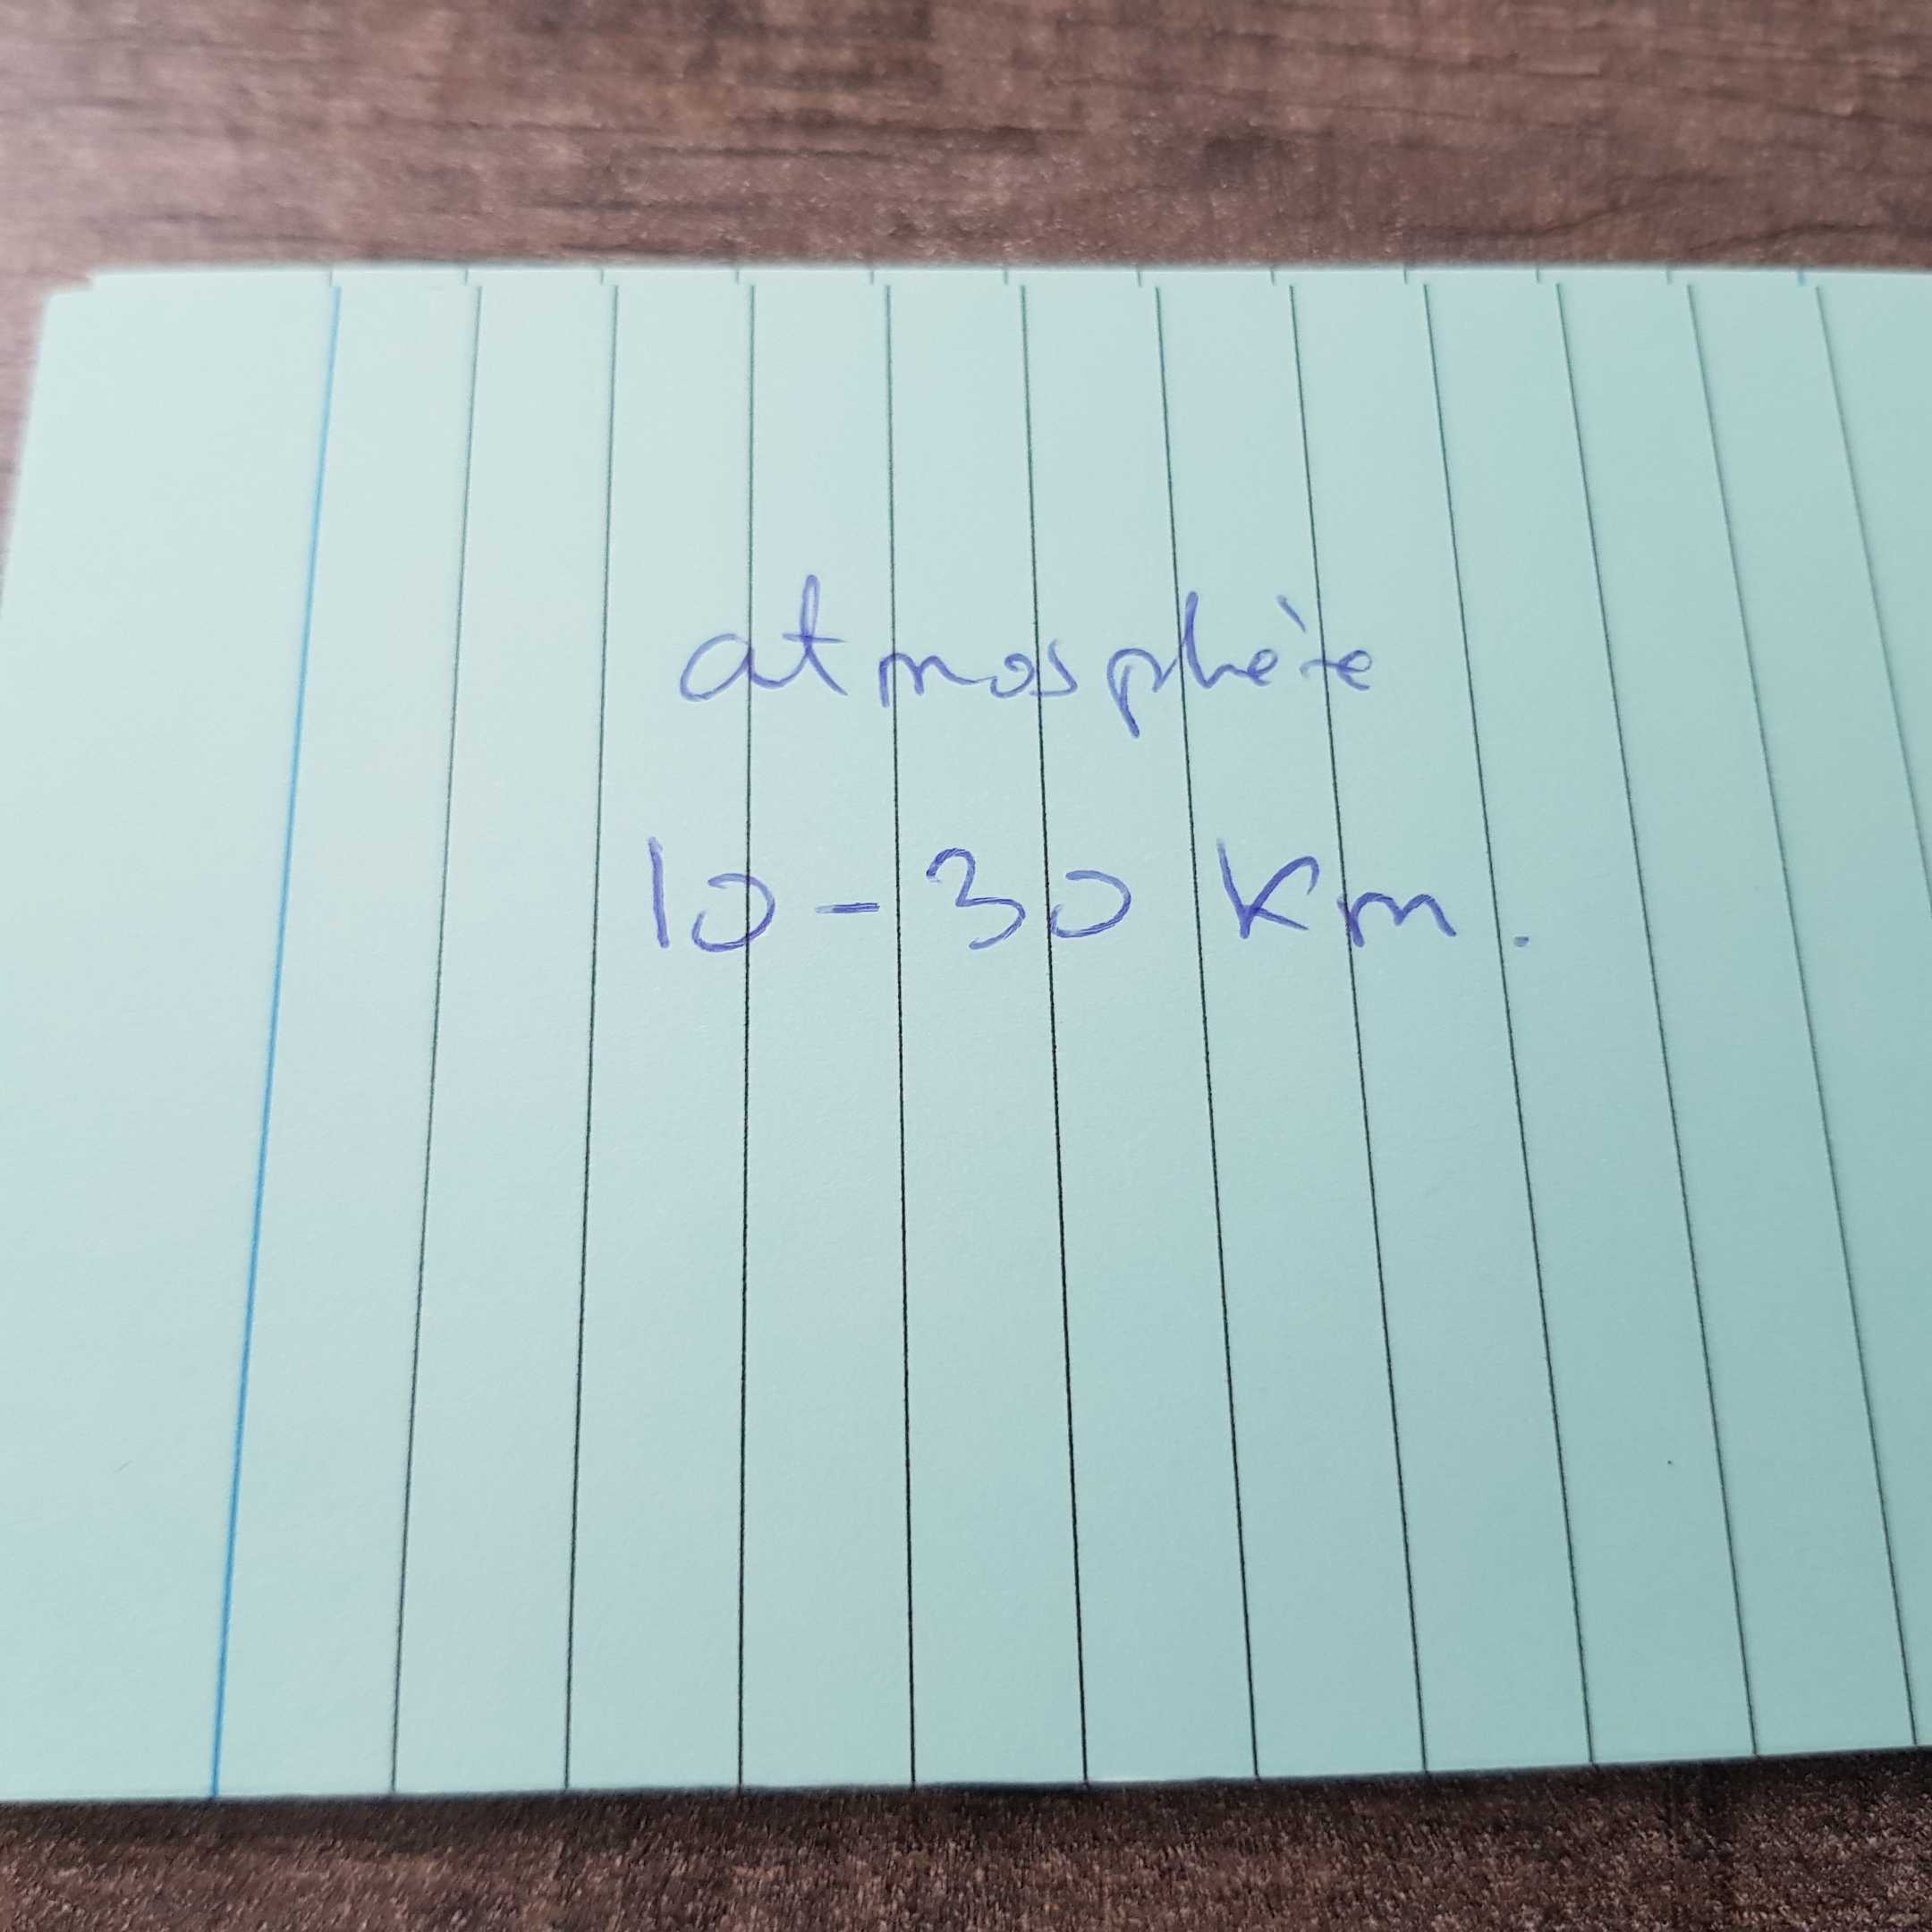 atmosphère
10-30 Km.